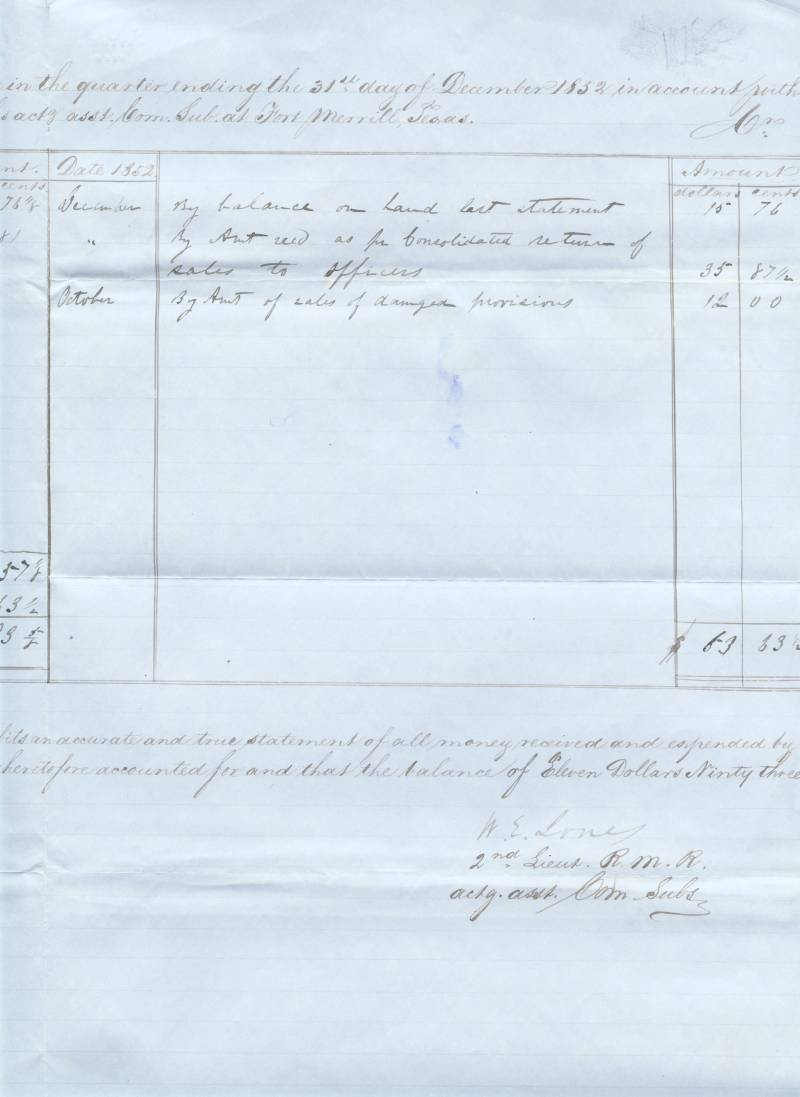 in the quarter ending the 31st day of December 1852 in account with
acts asst. Com. Sub. at Fort Merrill, Texas. Cr.
nt. Date 1852 Amount
cents dollars cents
76 December By balance on hand last statement 15 76
81 " By Amt recd as pr Consolidated return of
sales to officers 35 87½
October By Amt of sales of damaged provisions 12 00
57
63½
$ 63 63½
its an accurate and true statement of all money received and expended by
heretofore accounted for and that the balance of Eleven Dollars Ninty three
W. E. Jones
2nd Lieut. R. M. R.
actg. asst. Com. Subs